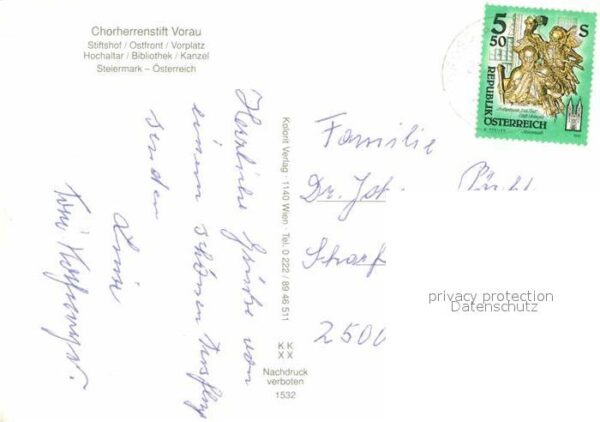 Chorherrenstift Vorau
Stiftshof / Ostfront / Vorplatz
Hochaltar / Bibliothek / Kanzel
Steiermark – Österreich
Herzliche Grüße von
einem schönen Ausflug
senden
Kolorit Verlag · 1140 Wien · Tel. 0 222 / 89 46 511
K K
X X
Nachdruck
verboten
1532
5 50 S
REPUBLIK
ÖSTERREICH
Familie
Dr.
2500
privacy protection
Datenschutz